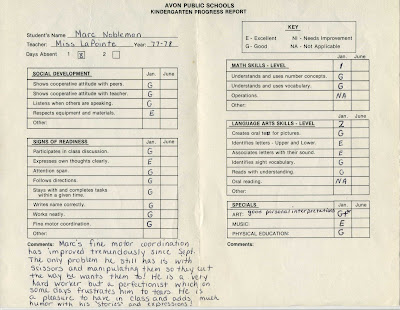 AVON PUBLIC SCHOOLS
KINDERGARTEN PROGRESS REPORT
Student's Name: Marc Nobleman
Teacher: Miss LaPointe Year: 77-78
Days Absent 1 8 2
KEY
E - Excellent NI - Needs Improvement
G - Good NA - Not Applicable
SOCIAL DEVELOPMENT Jan. June
Shows cooperative attitude with peers. G
Shows cooperative attitude with teacher. G
Listens when others are speaking. G
Respects equipment and materials. E
Other:
SIGNS OF READINESS Jan. June
Participates in class discussion. G
Expresses own thoughts clearly. E
Attention span. G
Follows directions. G
Stays with and completes tasks
within a given time. G
Writes name correctly. G
Works neatly. G
Fine motor coordination. G
Other:
Comments: Marc's fine motor coordination
has improved tremendously since Sept.
The only problem he still has is with
scissors and manipulating them so they cut
the way he wants them to! He is a very
hard worker but a perfectionist which on
some days frustrates him to tears. He is
a pleasure to have in class and adds much
humor with his "stories" and expressions!
MATH SKILLS - LEVEL 1 Jan. June
Understands and uses number concepts. G
Understands and uses vocabulary. G
Operations. NA
Other:
LANGUAGE ARTS SKILLS - LEVEL 2 Jan. June
Creates oral text for pictures. G
Identifies letters - Upper and Lower. E
Associates letters with their sound. E
Identifies sight vocabulary. G
Reads with understanding. G
Oral reading. NA
Other:
SPECIALS Jan. June
ART: good personal interpretations G+
MUSIC: E
PHYSICAL EDUCATION: G
Comments: